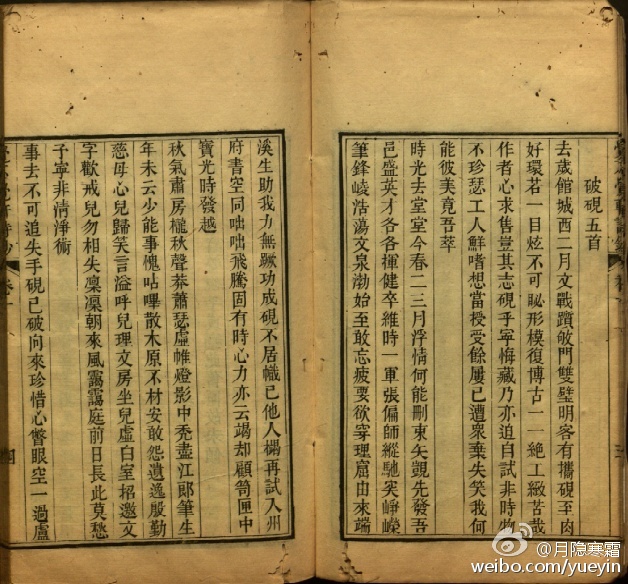 破硯五首
去歲館城西二月文戰躓敂門雙璧明客有攜硯至肉
好環若一目炫不可𮌎形模復博古一一絶工緻苦哉
作者心求售豈其志硯乎寧悔藏乃亦追自試非時物
不珍瑟工人鮮嗜想當授受餘屢已遭衆棄失笑我何
能彼美竟吾萃
時光去堂堂今春二三月浮情何能刪東矢覬先發吾
邑盛英才各各揮健卒維時一軍張偏師縱馳突崢嶸
筆鋒峻浩蕩文泉渤始至敢忘疲要欲穿理窟由來端
溪生助我力無蹶功成硯不居幟已他人搴再試入州
府書空同咄咄飛騰固有時心力亦云竭却顧笥匣中
寶光時發越
秋氣肅房櫳秋聲奏蕭瑟虛帷燈影中禿盡江郎筆生
年未云少能事愧呫嗶散木原不材安敢怨遺逸殷勤
慈母心兒歸笑言溢呼兒理文房坐兒虛白室招邀文
字歡戒兒勿相失凜凜朝來風靄靄庭前日長此莫愁
子寧非清淨術
事去不可追失手硯已破向來珍惜心瞥眼空一過盧
月隐寒霜
weibo.com/yueyin